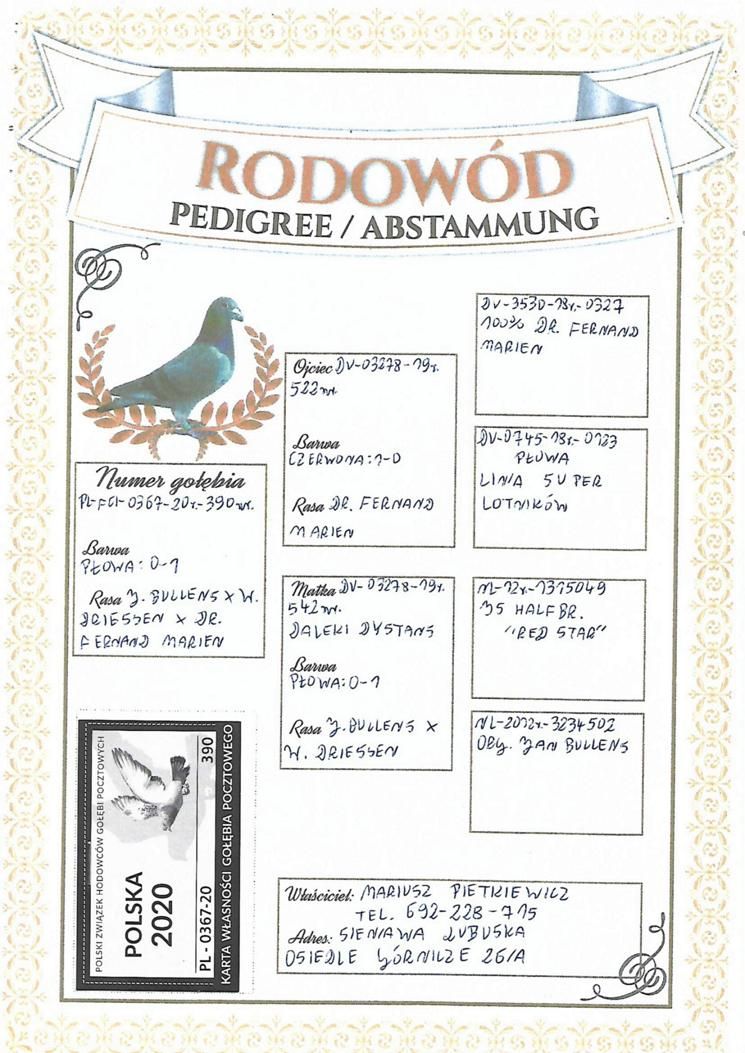 RODOWÓD
PEDIGREE / ABSTAMMUNG
Numer gołębia
PL-FCI-0367-20r.-390w.
Barwa
PŁOWA: 0-1
Rasa J. BULLENS X W.
DRIESSEN X DR.
FERNAND MARIEN
Ojciec DV-03278-19r.
522w.
Barwa
CZERWONA: 1-0
Rasa DR. FERNAND
MARIEN
Matka DV-03278-19r.
542w.
DALEKI DYSTANS
Barwa
PŁOWA: 0-1
Rasa J. BULLENS X
W. DRIESSEN
DV-3530-18r.-0327
100% DR. FERNAND
MARIEN
DV-0745-18r.-0183
PŁOWA
LINIA SUPER
LOTNIKÓW
NL-12r.-1315049
IS HALFBR.
"RED STAR"
NL-2012r.-3234502
ORY. JAN BULLENS
POLSKI ZWIĄZEK HODOWCÓW GOŁĘBI POCZTOWYCH
POLSKA
2020
PL - 0367-20 390
KARTA WŁASNOŚCI GOŁĘBIA POCZTOWEGO
Właściciel: MARIUSZ PIETKIEWICZ
TEL. 692-228-715
Adres: SIENIAWA LUBUSKA
OSIEDLE GÓRNICZE 26/A